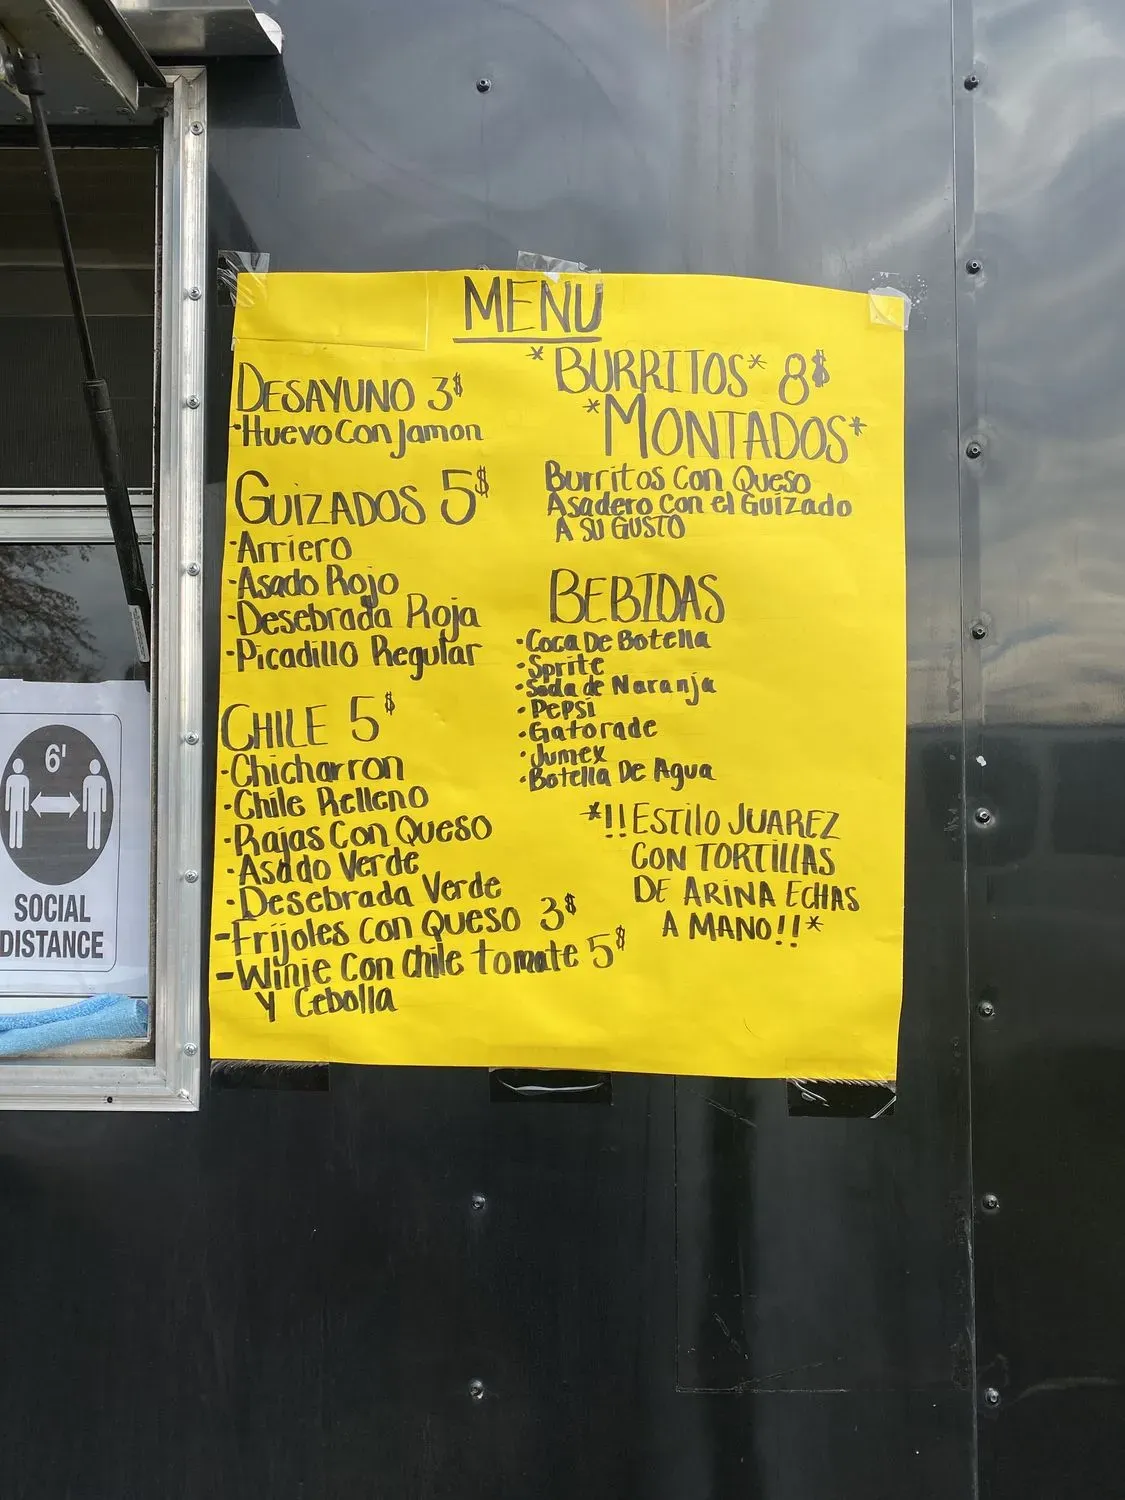 MENU
DESAYUNO 3$
·Huevo Con Jamon
GUIZADOS 5$
·Arriero
·Asado Rojo
·Desebrada Roja
·Picadillo Regular
CHILE 5$
·Chicharron
·Chile Relleno
·Rajas Con Queso
·Asado Verde
·Desebrada Verde
-Frijoles Con Queso 3$
-Winie Con chile tomate 5$
Y Cebolla
*BURRITOS* 8$
*MONTADOS*
Burritos Con Queso
Asadero con el Guizado
A SU GUSTO
BEBIDAS
·Coca De Botella
·Sprite
·Soda de Naranja
·Pepsi
·Gatorade
·Jumex
·Botella De Agua
*!!ESTILO JUAREZ
CON TORTILLAS
DE ARINA ECHAS
A MANO!!*
6'
SOCIAL
DISTANCE